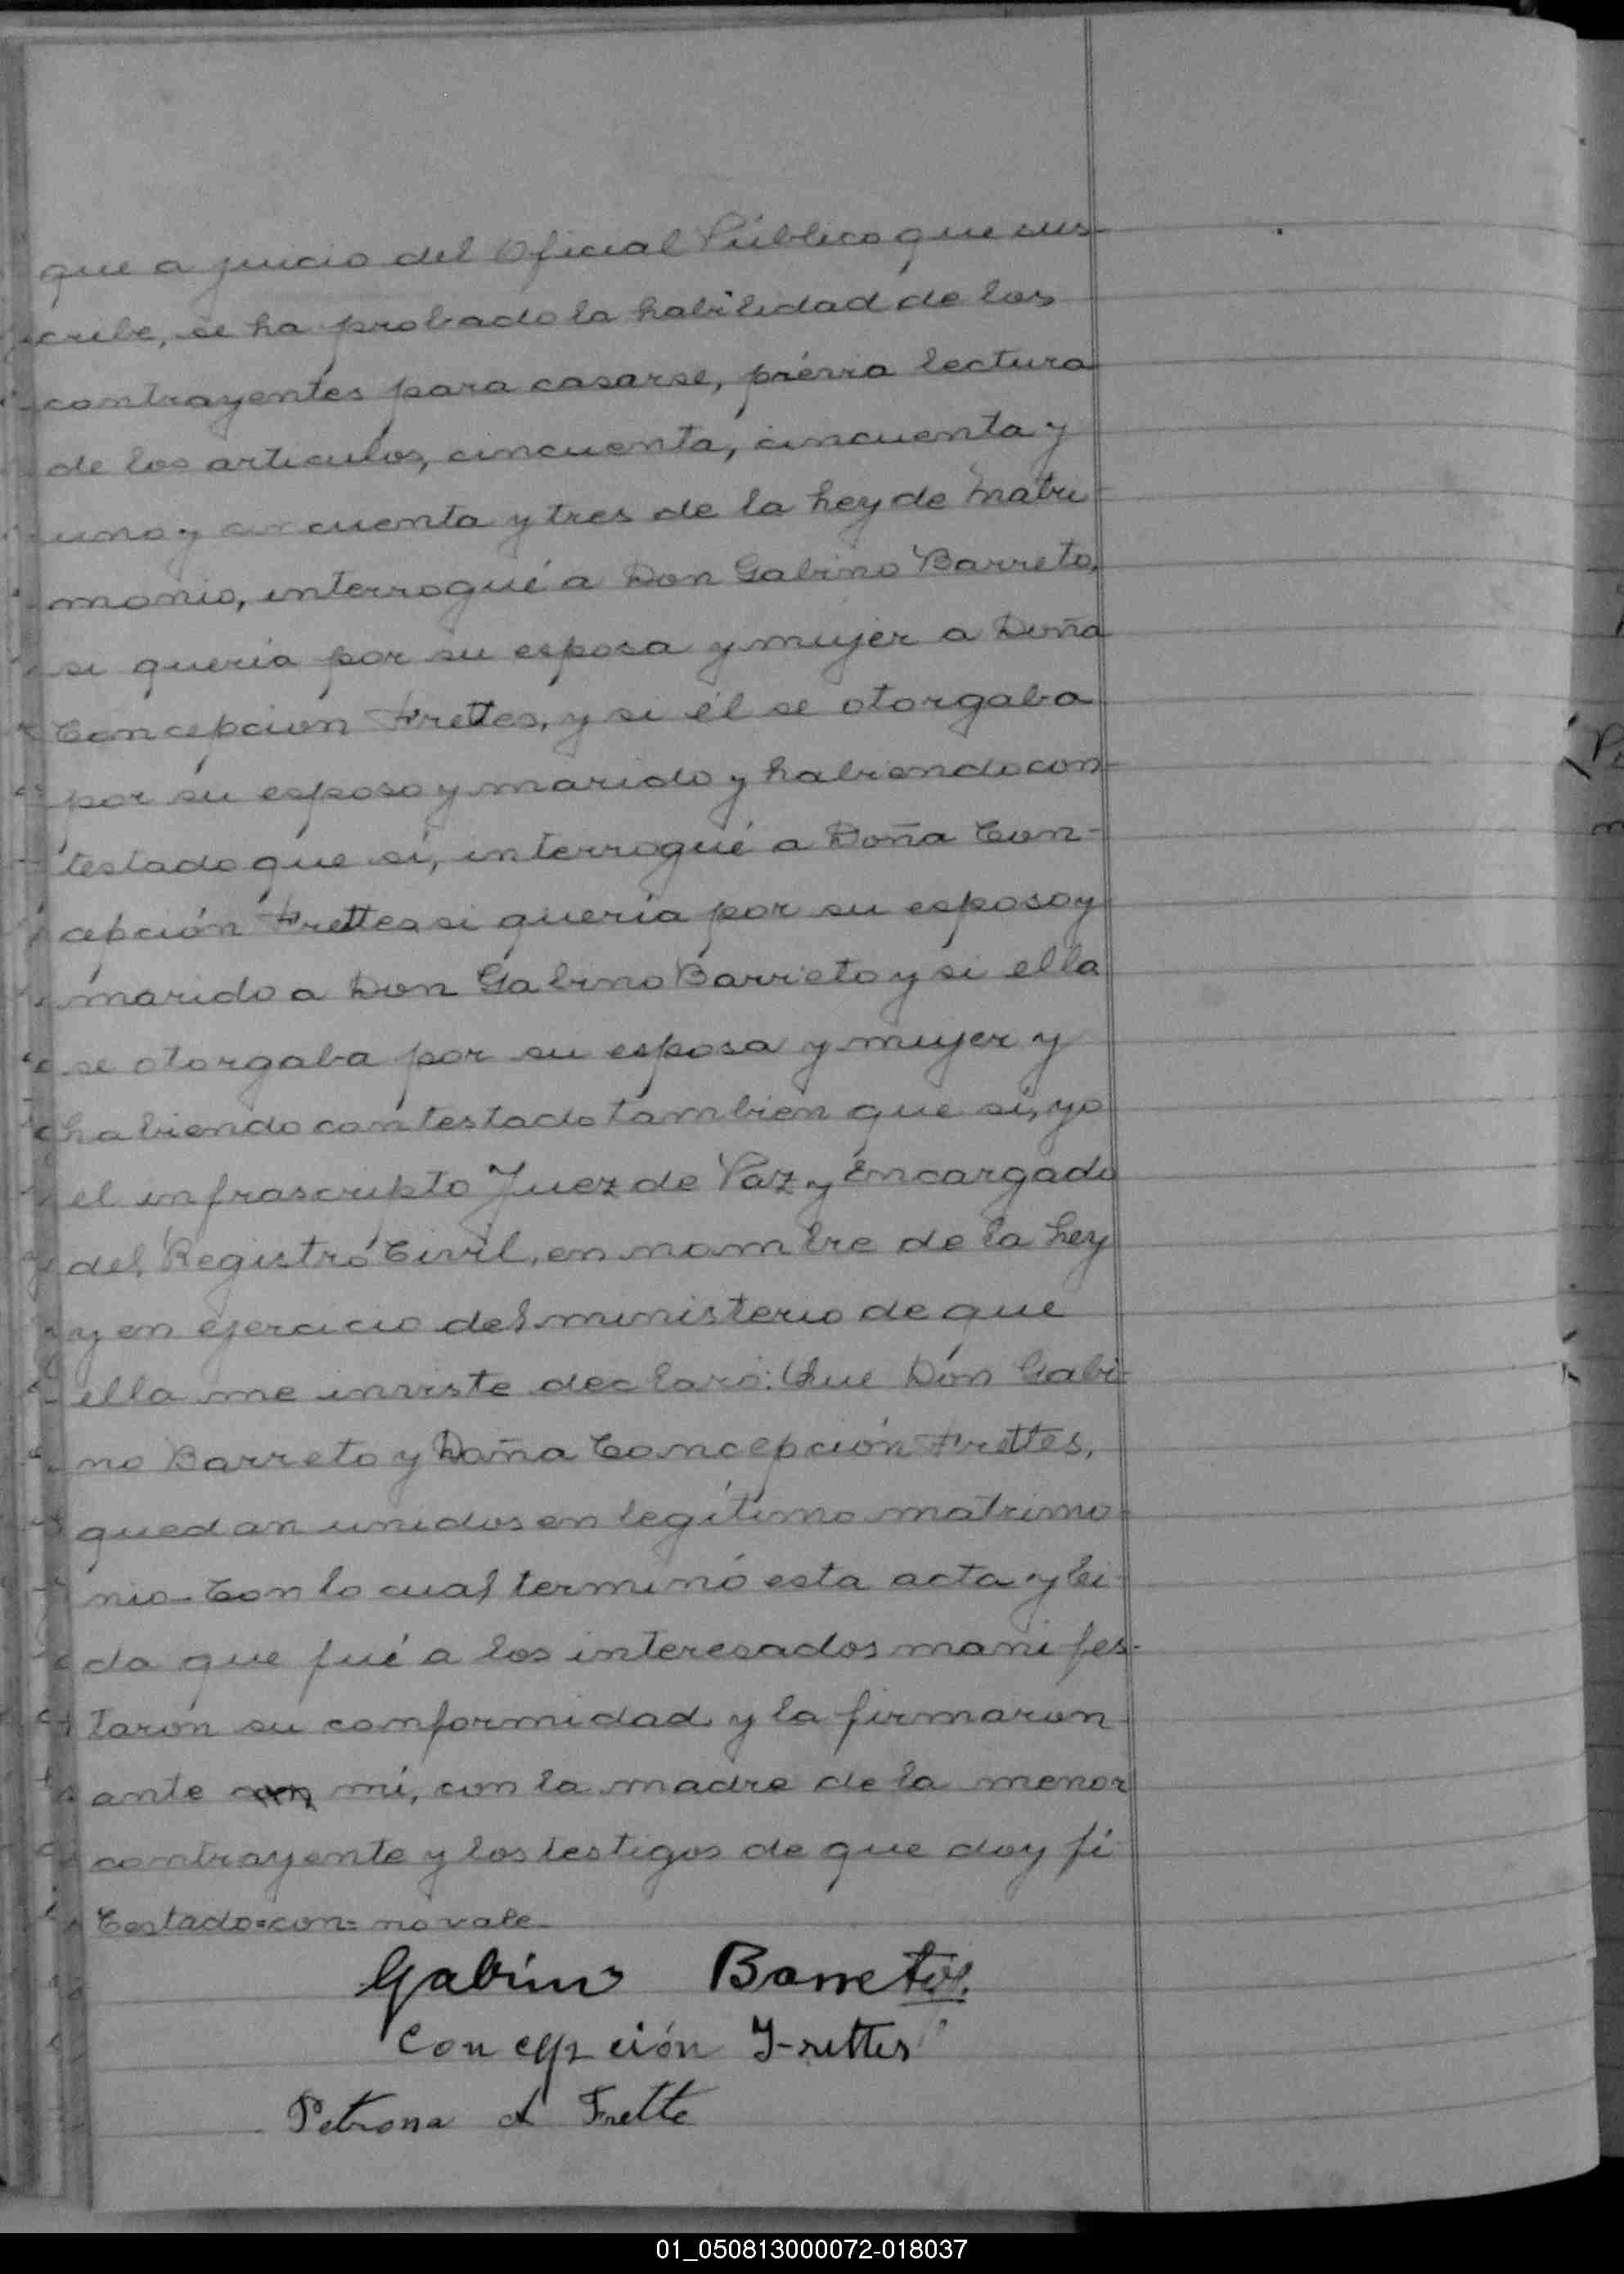 que a juicio del Oficial Público que sus-
cribe, se ha probado la habilidad de los
contrayentes para casarse, prévia lectura
de los articulos, cincuenta, cincuenta y
uno y cincuenta y tres de la Ley de Matri-
monio, interrogué a Don Gabino Barreto,
si quería por su esposa y mujer a Doña
Concepción Frettes, y si él se otorgaba
por su esposo y marido y habiendo con-
testado que sí, interrogué a Doña Con-
cepción Frettes si quería por su esposo y
marido a Don Gabino Barreto y si ella
se otorgaba por su esposa y mujer y
habiendo contestado tambien que si, yo
el infrascripto Juez de Paz y Encargado
del Registro Civil, en nombre de la Ley
y en ejercicio del ministerio de que
ella me inviste declaro: Que Don Gabi-
no Barreto y Doña Concepción Frettes,
quedan unidos en legítimo matrimo-
nio - Con lo cual terminó esta acta y leí-
da que fué a los interesados manifes-
taron su conformidad y la firmaron
ante con mí, con la madre de la menor
contrayente y los testigos de que doy fé
Testado=con= no vale-
Gabino Barreto
Concepción Frettes
Petrona A Frette
01_050813000072-018037